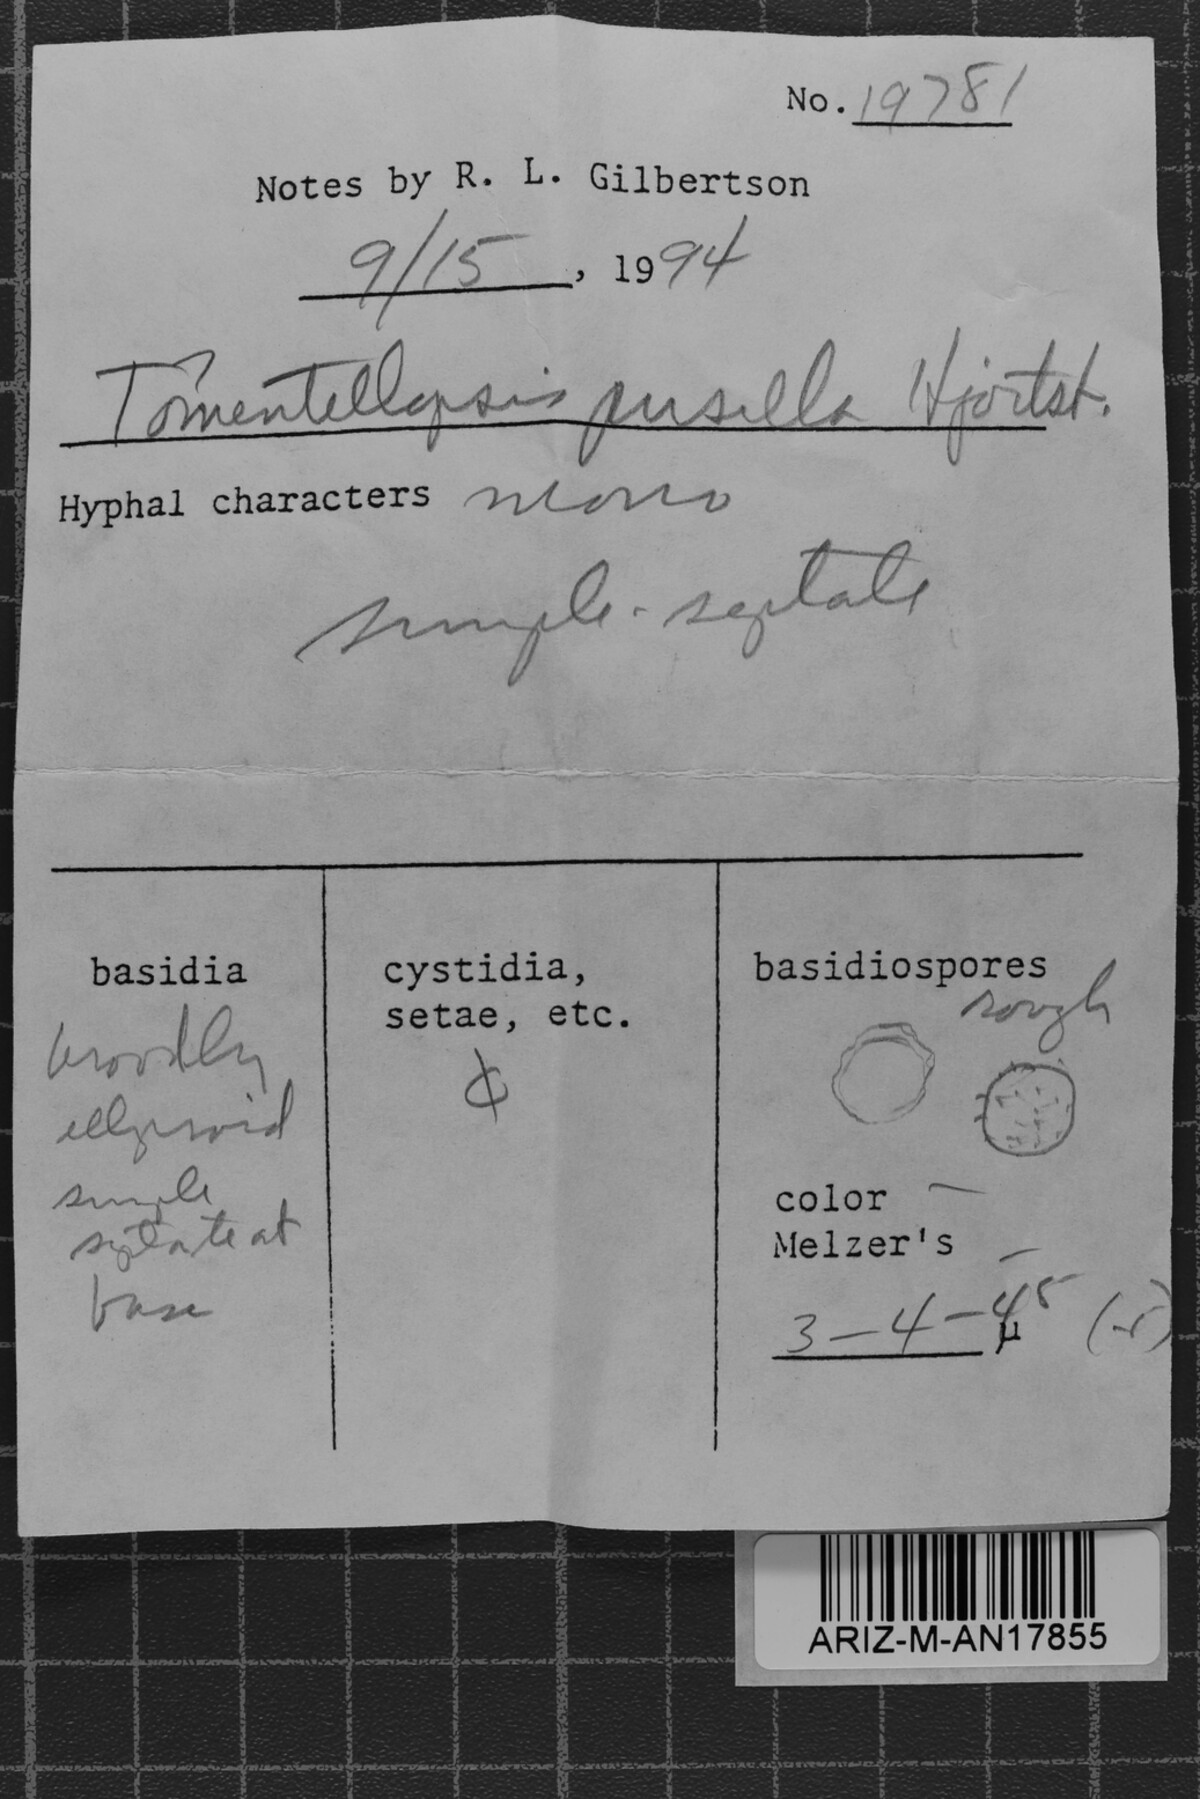 No. 19781
Notes by R. L. Gilbertson
9/15, 1994
Tomentellopsis pusilla Hjortst.
Hyphal characters mono
simple-septate
basidia
broadly
ellipsoid
simple
septate at
base
cystidia,
setae, etc.
basidiospores
rough
color —
Melzer's —
3-4-45 µ
ARIZ-M-AN17855